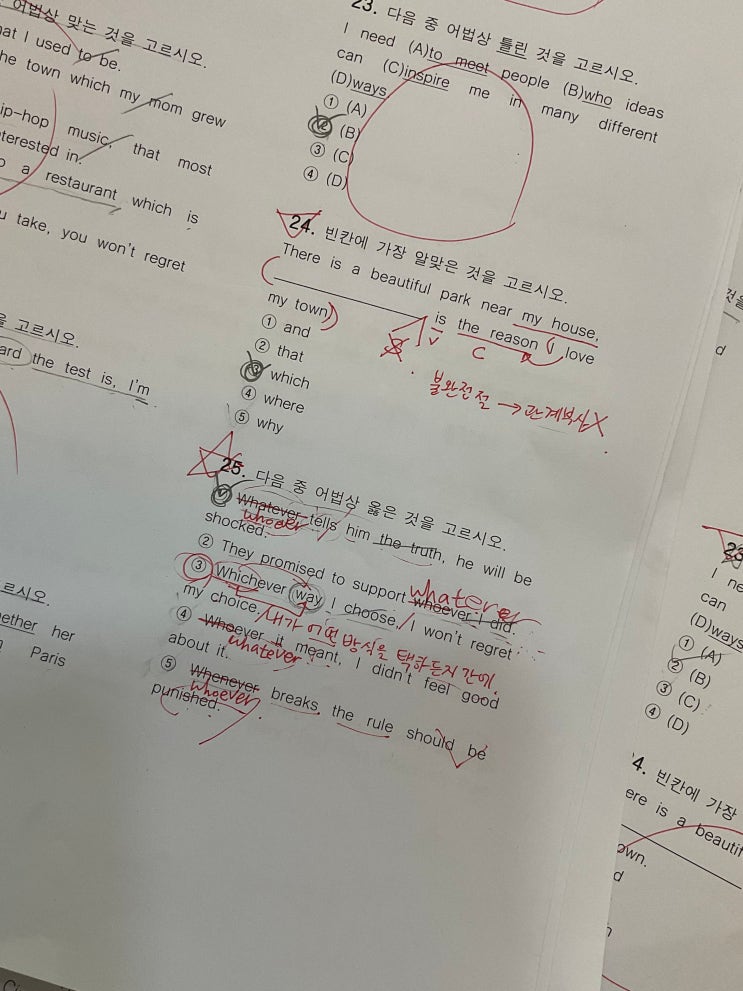 어법상 맞는 것을 고르시오.
at I used to be.
he town which my mom grew
ip-hop music, that most
terested in.
a restaurant which is
u take, you won't regret
을 고르시오.
ard the test is, I'm
르시오.
ether her
Paris
23. 다음 중 어법상 틀린 것을 고르시오.
I need (A)to meet people (B)who ideas
can (C)inspire me in many different
(D)ways
① (A)
② (B)
③ (C)
④ (D)
24. 빈칸에 가장 알맞은 것을 고르시오.
There is a beautiful park near my house,
is the reason I love
my town.
V
C
① and
② that
③ which
④ where
⑤ why
불완전절 → 관계부사 X
25. 다음 중 어법상 옳은 것을 고르시오.
① Whatever tells him the truth, he will be
whoever
shocked.
② They promised to support whoever I did.
whatever
③ Whichever way I choose, I won't regret
my choice.
내가 어떤 방식을 택하든지 간에.
④ Whoever it meant, I didn't feel good
whatever
about it.
⑤ Whenever breaks the rule should be
whoever
punished.
23
I ne
can
(D)ways
① (A)
② (B)
③ (C)
④ (D)
4. 빈칸에 가장
ere is a beautif
own.
d